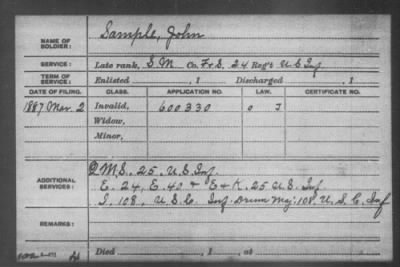 NAME OF SOLDIER: Sample, John
SERVICE: Late rank, S.M. Co. F&S, 24 Reg't U S Inf
TERM OF SERVICE: Enlisted , 1 Discharged , 1
DATE OF FILING. CLASS. APPLICATION NO. LAW. CERTIFICATE NO.
1887 Mar. 2 Invalid, 600330 O J
Widow,
Minor,
ADDITIONAL SERVICES: QMS. 25. U.S. Inf.
E. 24, E. 40 & E & K. 25 U.S. Inf
I, 108, U.S.C. Inf - Drum Maj: 108, U.S.C. Inf
REMARKS:
Died , 1 , at